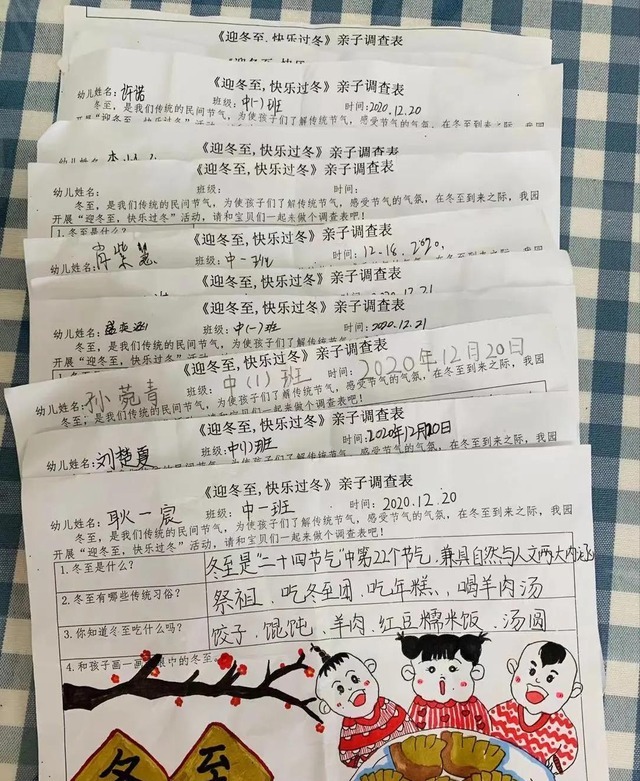 《迎冬至,快乐过冬》亲子调查表
《迎冬至,快乐过冬》亲子调查表
幼儿姓名:许诺 班级:中(一)班 时间:2020.12.20
冬至,是我们传统的民间节气,为使孩子们了解传统节气,感受节气的气氛,在冬至到来之际,我园
《迎冬至,快乐过冬》亲子调查表
《迎冬至,快乐过冬》亲子调查表
幼儿姓名: 班级: 时间:
冬至,是我们传统的民间节气,为使孩子们了解传统节气,感受节气的气氛,在冬至到来之际,我园
开展“迎冬至,快乐过冬”活动,请和宝贝们一起来做个调查表吧!
1.冬至是什么?
《迎冬至,快乐过冬》亲子调查表
幼儿姓名:肖紫慧 班级:中一班 时间:12.18.2020.
《迎冬至,快乐过冬》亲子调查表
12.21
《迎冬至,快乐过冬》亲子调查表
幼儿姓名: 班级:中(一)班 时间:2020.12.21
冬至,是我们传统的民间节气,为使孩子们了解传统节气,感受节气的气氛,在冬至到来之际,我园
《迎冬至,快乐过冬》亲子调查表
幼儿姓名:孙菀青 班级:中(1)班 时间:2020年12月20日
冬至,是我们传统的民间节气,为使孩子们了解传统节气,感受节气的气氛,在冬至到来之际,我园
《迎冬至,快乐过冬》亲子调查表
幼儿姓名:刘楚夏 班级:中(1)班 时间:2020年12月20日
《迎冬至,快乐过冬》亲子调查表
幼儿姓名:耿一宸 班级:中一班 时间:2020.12.20
冬至,是我们传统的民间节气,为使孩子们了解传统节气,感受节气的气氛,在冬至到来之际,我园
开展“迎冬至,快乐过冬”活动,请和宝贝们一起来做个调查表吧!
1.冬至是什么? 冬至是“二十四节气”中第22个节气,兼具自然与人文两大内涵
2.冬至有哪些传统习俗? 祭祖、吃冬至团、吃年糕、、喝羊肉汤
3.你知道冬至吃什么吗? 饺子、馄饨、羊肉、红豆糯米饭、汤圆
4.和孩子画一画 眼中的冬至
冬至